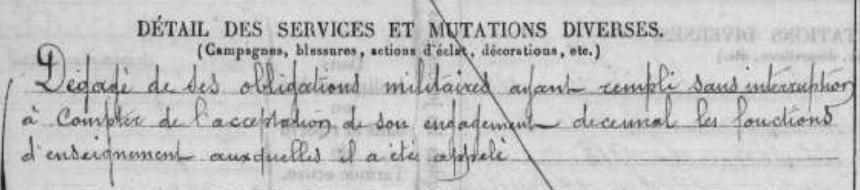 DÉTAIL DES SERVICES ET MUTATIONS DIVERSES.
(Campagnes, blessures, actions d'éclat, décorations, etc.)
Dégagé de ses obligations militaires ayant rempli sans interruption
à compter de l'acceptation de son engagement decennal les fonctions
d'enseignement auxquelles il a été appelé